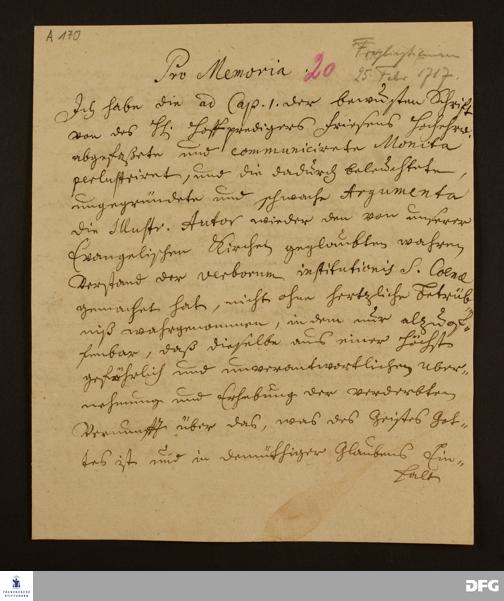 A 170
Pro Memoria. 20
25. Febr. 1717.
Ich habe die ad Cap. 1. der bewusten Schrifft
von des H. Hoffpredigers Friesens Hochehrw.
abgefaßete und communicirete Monita
perlustriret, und die dadurch beleuchtete,
ungegründete und schwache Argumenta
die Illustr. Autor wieder den von unserer
Evangelischen Kirchen geglaubten wahren
Verstand der verborum institutionis S. Coenæ
gemachet hat, nicht ohne hertzliche Betrüb-
niß wahrgenommen, indem nur alzuof-
fenbar, daß dieselbe aus einer höchst
gefährlich und unverantwortlichen Uber-
nehmung und Erhebung der verderbten
Vernunfft über das, was des Geistes Got-
tes ist und in demüthiger Glaubens Ein-
falt
FRANCKESCHE
STIFTUNGEN
DFG